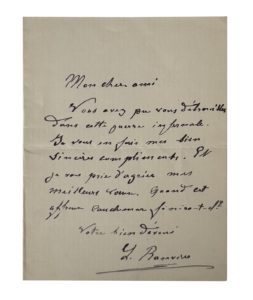 Mon cher ami
Vous avez pu vous débrouiller
dans cette guerre infernale.
Je vous en fais mes bien
sincères compliments. Et
je vous prie d'agréer mes
meilleurs vœux. Quand cet
affreux cauchemar finira-t-il?
Votre bien dévoué